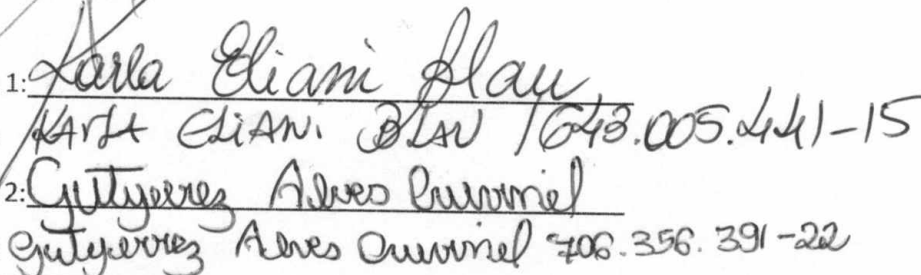 1: Karla Eliani Blau
KARLA ELIANI BLAU / 643.005.441-15
2: Gutyerrez Alves
Gutyerrez Alves 706.356.391-22